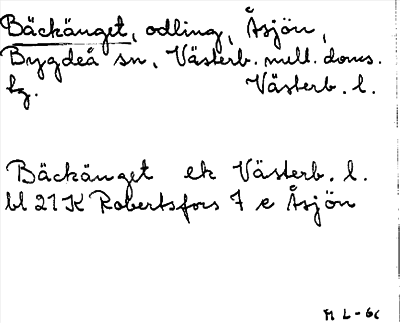 Bäckänget, odling, Åsjön,
Bygdeå sn, Västerb. mell. doms.
hg. Västerb. l.
Bäckänget ek Västerb. l.
bl 21K Robertsfors 7 e Åsjön